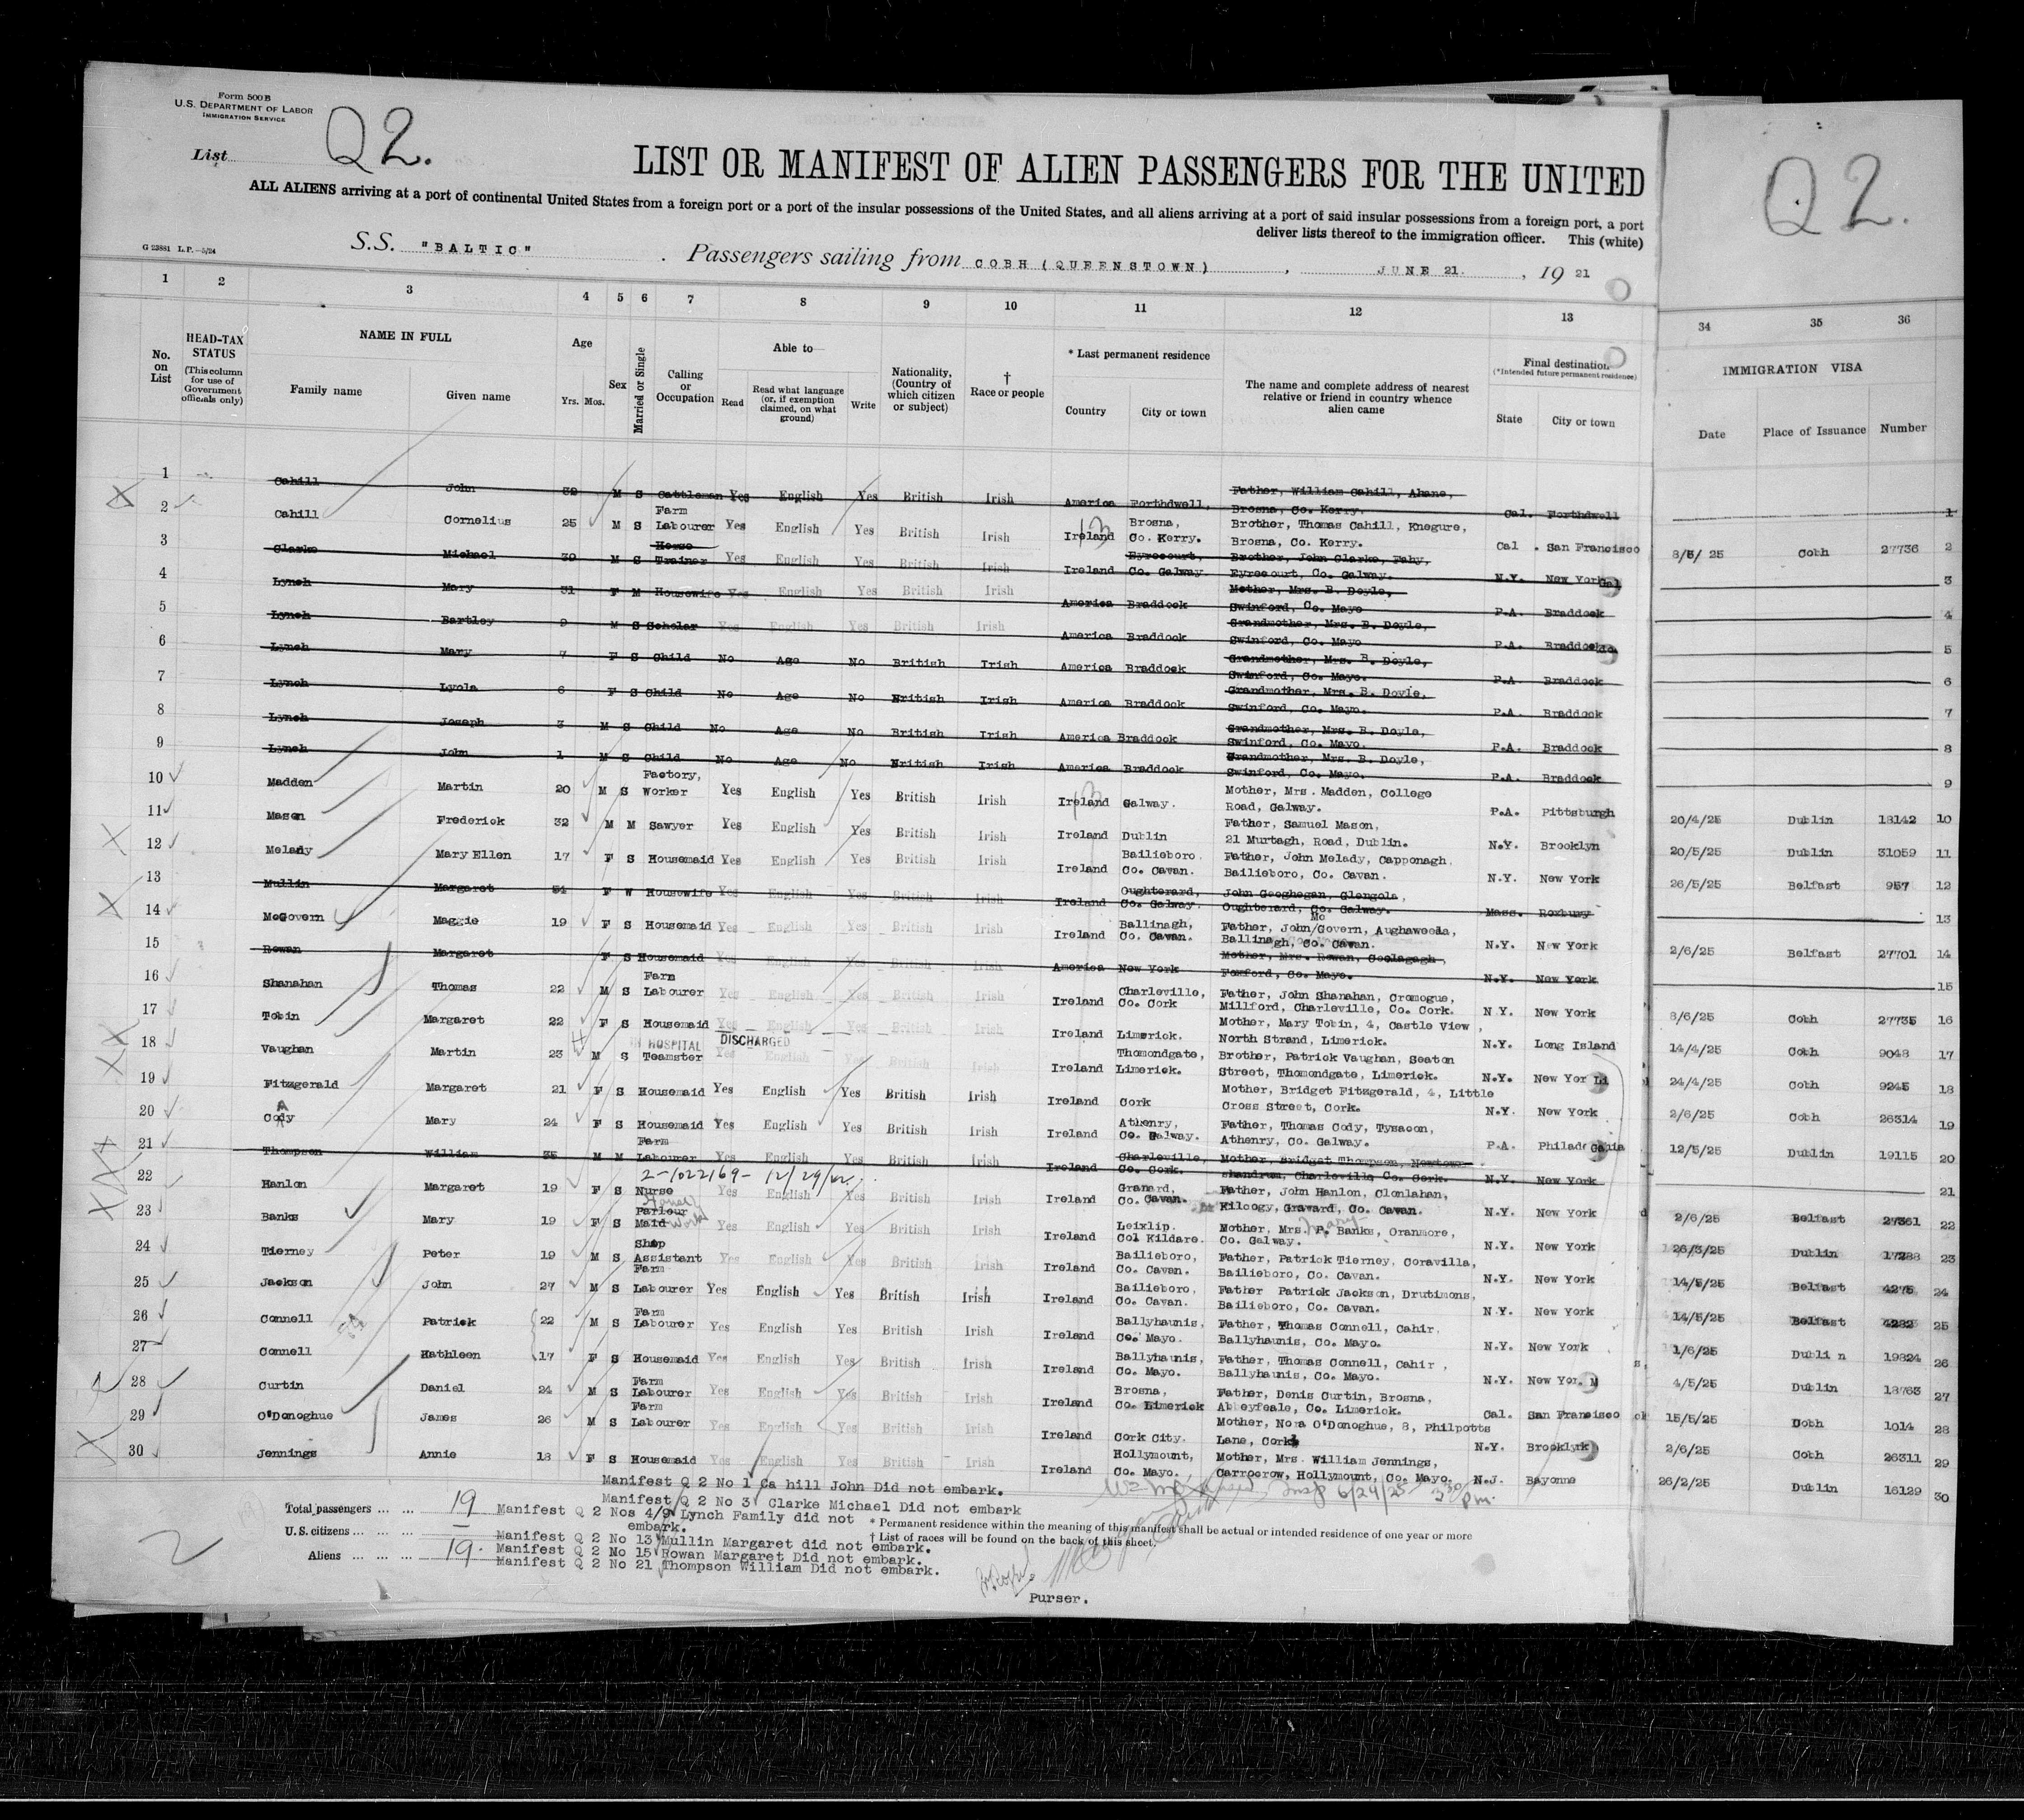 Form 500 B
U.S. DEPARTMENT OF LABOR
IMMIGRATION SERVICE
List Q2.
Q2.
LIST OR MANIFEST OF ALIEN PASSENGERS FOR THE UNITED
ALL ALIENS arriving at a port of continental United States from a foreign port or a port of the insular possessions of the United States, and all aliens arriving at a port of said insular possessions from a foreign port, a port
deliver lists thereof to the immigration officer. This (white)
G 23881 L.P.—5/24
S.S. "BALTIC" . Passengers sailing from COBH (QUEENSTOWN) , JUNE 21. , 19 21
1 2 3 4 5 6 7 8 9 10 11 12 13 34 35 36
No. on List
HEAD-TAX STATUS (This column for use of Government officials only)
NAME IN FULL Family name Given name
Age Yrs. Mos.
Sex
Married or Single
Calling or Occupation
Able to Read Read what language (or, if exemption claimed, on what ground) Write
Nationality, (Country of which citizen or subject)
† Race or people
* Last permanent residence Country City or town
The name and complete address of nearest relative or friend in country whence alien came
Final destination (*Intended future permanent residence) State City or town
IMMIGRATION VISA Date Place of Issuance Number
1 Cahill John 32 M S Cattleman Yes English Yes British Irish America Forthdwell, Father, William Cahill, Ahane, Brosna, Co. Kerry. Cal. Forthdwell 1
2 Cahill Cornelius 25 M S Farm Labourer Yes English Yes British Irish Ireland Brosna, Co. Kerry. Brother, Thomas Cahill, Knegure, Brosna, Co. Kerry. Cal . San Francisco 8/6/ 25 Cobh 27736 2
3 Clarke Michael 39 M S Horse Trainer Yes English Yes British Irish Ireland Eyrecourt, Co. Galway. Brother, John Clarke, Fahy, Eyrecourt, Co. Galway. N.Y. New York 3
4 Lynch Mary 31 F M Housewife Yes English Yes British Irish America Braddock Mother, Mrs. B. Doyle, Swinford, Co. Mayo P.A. Braddock 4
5 Lynch Bartley 9 M S Scholar Yes English Yes British Irish America Braddock Grandmother, Mrs. B. Doyle, Swinford, Co. Mayo P.A. Braddock 5
6 Lynch Mary 7 F S Child No Age No British Irish America Braddock Grandmother, Mrs. B. Doyle, Swinford, Co. Mayo. P.A. Braddock 6
7 Lynch Lyola 6 F S Child No Age No British Irish America Braddock Grandmother, Mrs. B. Doyle, Swinford, Co. Mayo. P.A. Braddock 7
8 Lynch Joseph 3 M S Child No Age No British Irish America Braddock Grandmother, Mrs. B. Doyle, Swinford, Co. Mayo. P.A. Braddock 8
9 Lynch John 1 M S Child No Age No British Irish America Braddock Grandmother, Mrs. B. Doyle, Swinford, Co. Mayo. P.A. Braddock 9
10 Madden Martin 20 M S Factory, Worker Yes English Yes British Irish Ireland Galway. Mother, Mrs. Madden, College Road, Galway. P.A. Pittsburgh 20/4/25 Dublin 18142 10
11 Mason Frederick 32 M M Sawyer Yes English Yes British Irish Ireland Dublin Father, Samuel Mason, 21 Murtagh, Road, Dublin. N.Y. Brooklyn 20/5/25 Dublin 31059 11
12 Melady Mary Ellen 17 F S Housemaid Yes English Yes British Irish Ireland Bailieboro. Co. Cavan. Father, John Melady, Capponagh, Bailieboro, Co. Cavan. N.Y. New York 26/5/25 Belfast 957 12
13 Mullin Margaret 54 F W Housewife Yes English Yes British Irish Ireland Oughterard, Co. Galway. John Geoghegan, Glengola, Oughterard, Co. Galway. Mass. Roxbury 13
14 McGovern Maggie 19 F S Housemaid Yes English Yes British Irish Ireland Ballinagh, Co. Cavan. Father, John Mc/Govern, Aughaweela, Ballinagh, Co. Cavan. N.Y. New York 2/6/25 Belfast 27701 14
15 Rowan Margaret F S Housemaid Yes English Yes British Irish America New York Mother, Mrs. Rowan, Coolagagh, Foxford, Co. Mayo. N.Y. New York 15
16 Shanahan Thomas 22 M S Farm Labourer Yes English Yes British Irish Ireland Charleville, Co. Cork Father, John Shanahan, Cromogue, Millford, Charleville, Co. Cork. N.Y. New York 8/6/25 Cobh 27735 16
17 Tobin Margaret 22 F S Housemaid Yes English Yes British Irish Ireland Limerick. Mother, Mary Tobin, 4, Castle View, North Strand, Limerick. N.Y. Long Island 14/4/25 Cobh 9048 17
IN HOSPITAL DISCHARGED
18 Vaughan Martin 23 M S Teamster Yes English Yes British Irish Ireland Thomondgate, Limerick. Brother, Patrick Vaughan, Seaton Street, Thomondgate, Limerick. N.Y. New Yor 24/4/25 Cobh 9245 18
19 Fitzgerald Margaret 21 F S Housemaid Yes English Yes British Irish Ireland Cork Mother, Bridget Fitzgerald, 4, Little Cross Street, Cork. N.Y. New York 2/6/25 Cobh 26314 19
20 Cody Mary 24 F S Housemaid Yes English Yes British Irish Ireland Athenry, Co. Galway. Father, Thomas Cody, Tysacon, Athenry, Co. Galway. P.A. Philad 12/5/25 Dublin 19115 20
21 Thompson William 35 M M Farm Labourer Yes English Yes British Irish Ireland Charleville, Co. Cork. Mother, Bridget Thompson, Newtown- shandrum, Charleville Co. Cork. N.Y. New York 21
2-1022169- 12/29/42.
22 Hanlon Margaret 19 F S Nurse Yes English Yes British Irish Ireland Granard, Co. Cavan. Father, John Hanlon, Clonlahan, Kilcogy, Graward, Co. Cavan. N.Y. New York 2/6/25 Belfast 27361 22
23 Banks Mary 19 F S Parlour Maid House Work Yes English Yes British Irish Ireland Leixlip. Col Kildare. Mother, Mrs. P. Mary Banks, Oranmore, Co. Galway. N.Y. New York 26/3/25 Dublin 17288 23
24 Tierney Peter 19 M S Shop Assistant Yes English Yes British Irish Ireland Bailieboro, Co. Cavan. Father, Patrick Tierney, Coravilla, Bailieboro, Co. Cavan. N.Y. New York 14/5/25 Belfast 4275 24
25 Jackson John 27 M S Farm Labourer Yes English Yes British Irish Ireland Bailieboro, Co. Cavan. Father Patrick Jackson, Drutimons, Bailieboro, Co. Cavan. N.Y. New York 14/5/25 Belfast 4282 25
26 Connell Patrick 22 M S Farm Labourer Yes English Yes British Irish Ireland Ballyhaunis, Co. Mayo. Father, Thomas Connell, Cahir. Ballyhaunis, Co. Mayo. N.Y. New York 1/6/25 Dubli n 19824 26
27 Connell Kathleen 17 F S Housemaid Yes English Yes British Irish Ireland Ballyhaunis, Co. Mayo. Father, Thomas Connell, Cahir, Ballyhaunis, Co. Mayo. N.Y. New Yor 4/5/25 Dublin 18763 27
28 Curtin Daniel 24 M S Farm Labourer Yes English Yes British Irish Ireland Brosna, Co. Limerick Father, Denis Curtin, Brosna, Abbeyfeale, Co. Limerick. Cal. San Francisco 15/5/25 Cobh 1014 28
29 O'Donoghue James 26 M S Farm Labourer Yes English Yes British Irish Ireland Cork City. Mother, Nora O'Donoghue, 8, Philpotts Lane, Cork. N.Y. Brooklyn 2/6/25 Cobh 26311 29
30 Jennings Annie 18 F S Housemaid Yes English Yes British Irish Ireland Hollymount, Co. Mayo. Mother, Mrs. William Jennings, Carrocrow, Hollymount, Co. Mayo. N.J. Bayonne 26/2/25 Dublin 16129 30
Manifest Q 2 No 1 Ca hill John Did not embark.
Insp 6/29/25 3 30 pm.
Manifest Q 2 No 3 Clarke Michael Did not embark
Total passengers ... ... 19
Manifest Q 2 Nos 4/9 Lynch Family did not embark.
* Permanent residence within the meaning of this manifest shall be actual or intended residence of one year or more
U.S. citizens ... ... ... —
Manifest Q 2 No 13 Mullin Margaret did not embark.
† List of races will be found on the back of this sheet.
Manifest Q 2 No 15 Rowan Margaret Did not embark.
Aliens ... ... ... 19.
Manifest Q 2 No 21 Thompson William Did not embark.
2
Purser.